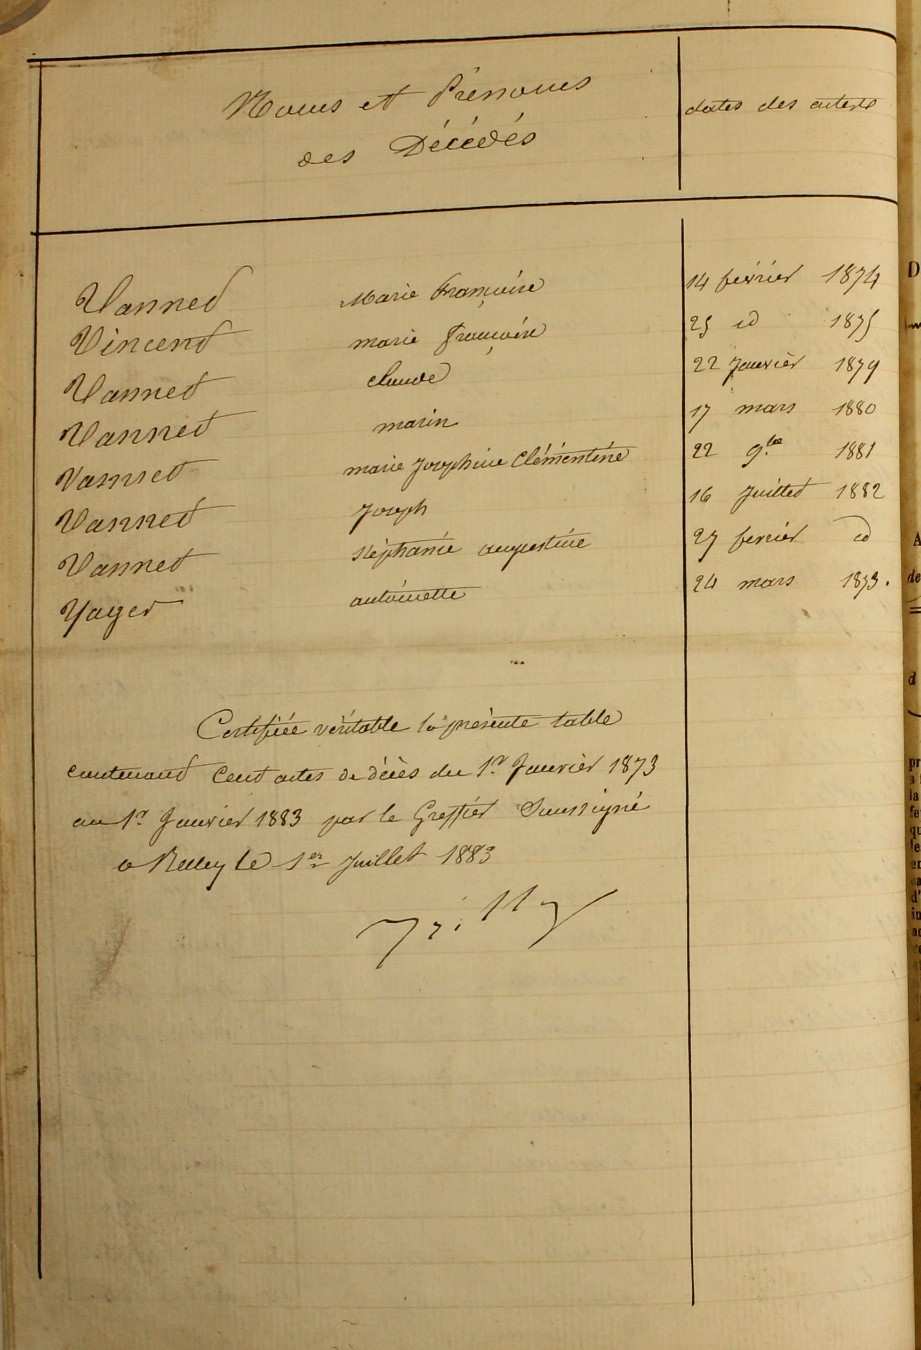 Noms et Prénoms
des Décédés
dates des actes
Vannet Marie Françoise 14 février 1874
Vincent marie Françoise 25 id 1875
Vannet claude 22 Janvier 1879
Vannet marin 17 mars 1880
Vannet marie Josephine Clémentine 22 9bre 1881
Vannet Joseph 16 Juillet 1882
Vannet Stéphanie augustine 27 fevrier id
Yager antoinette 24 mars 1873.
Certifiée véritable la présente table
contenant Cent actes de décès du 1er Janvier 1873
au 1er Janvier 1883 par le Greffier Soussigné
a Belley le 1er Juillet 1883